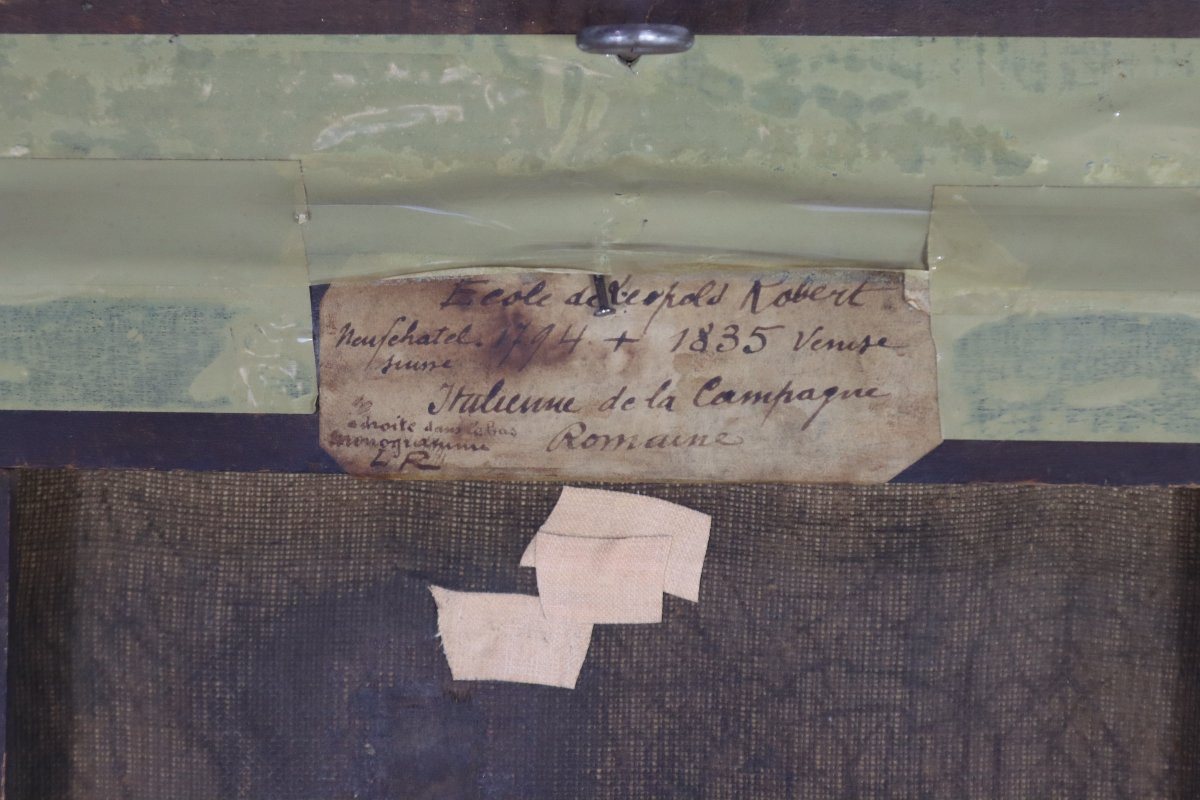 Ecole de Leopold Robert
Neufchatel. 1794 + 1835 Venise
suisse
Italienne de la Campagne
Romaine
a droite dans le bas
monogramme
LR